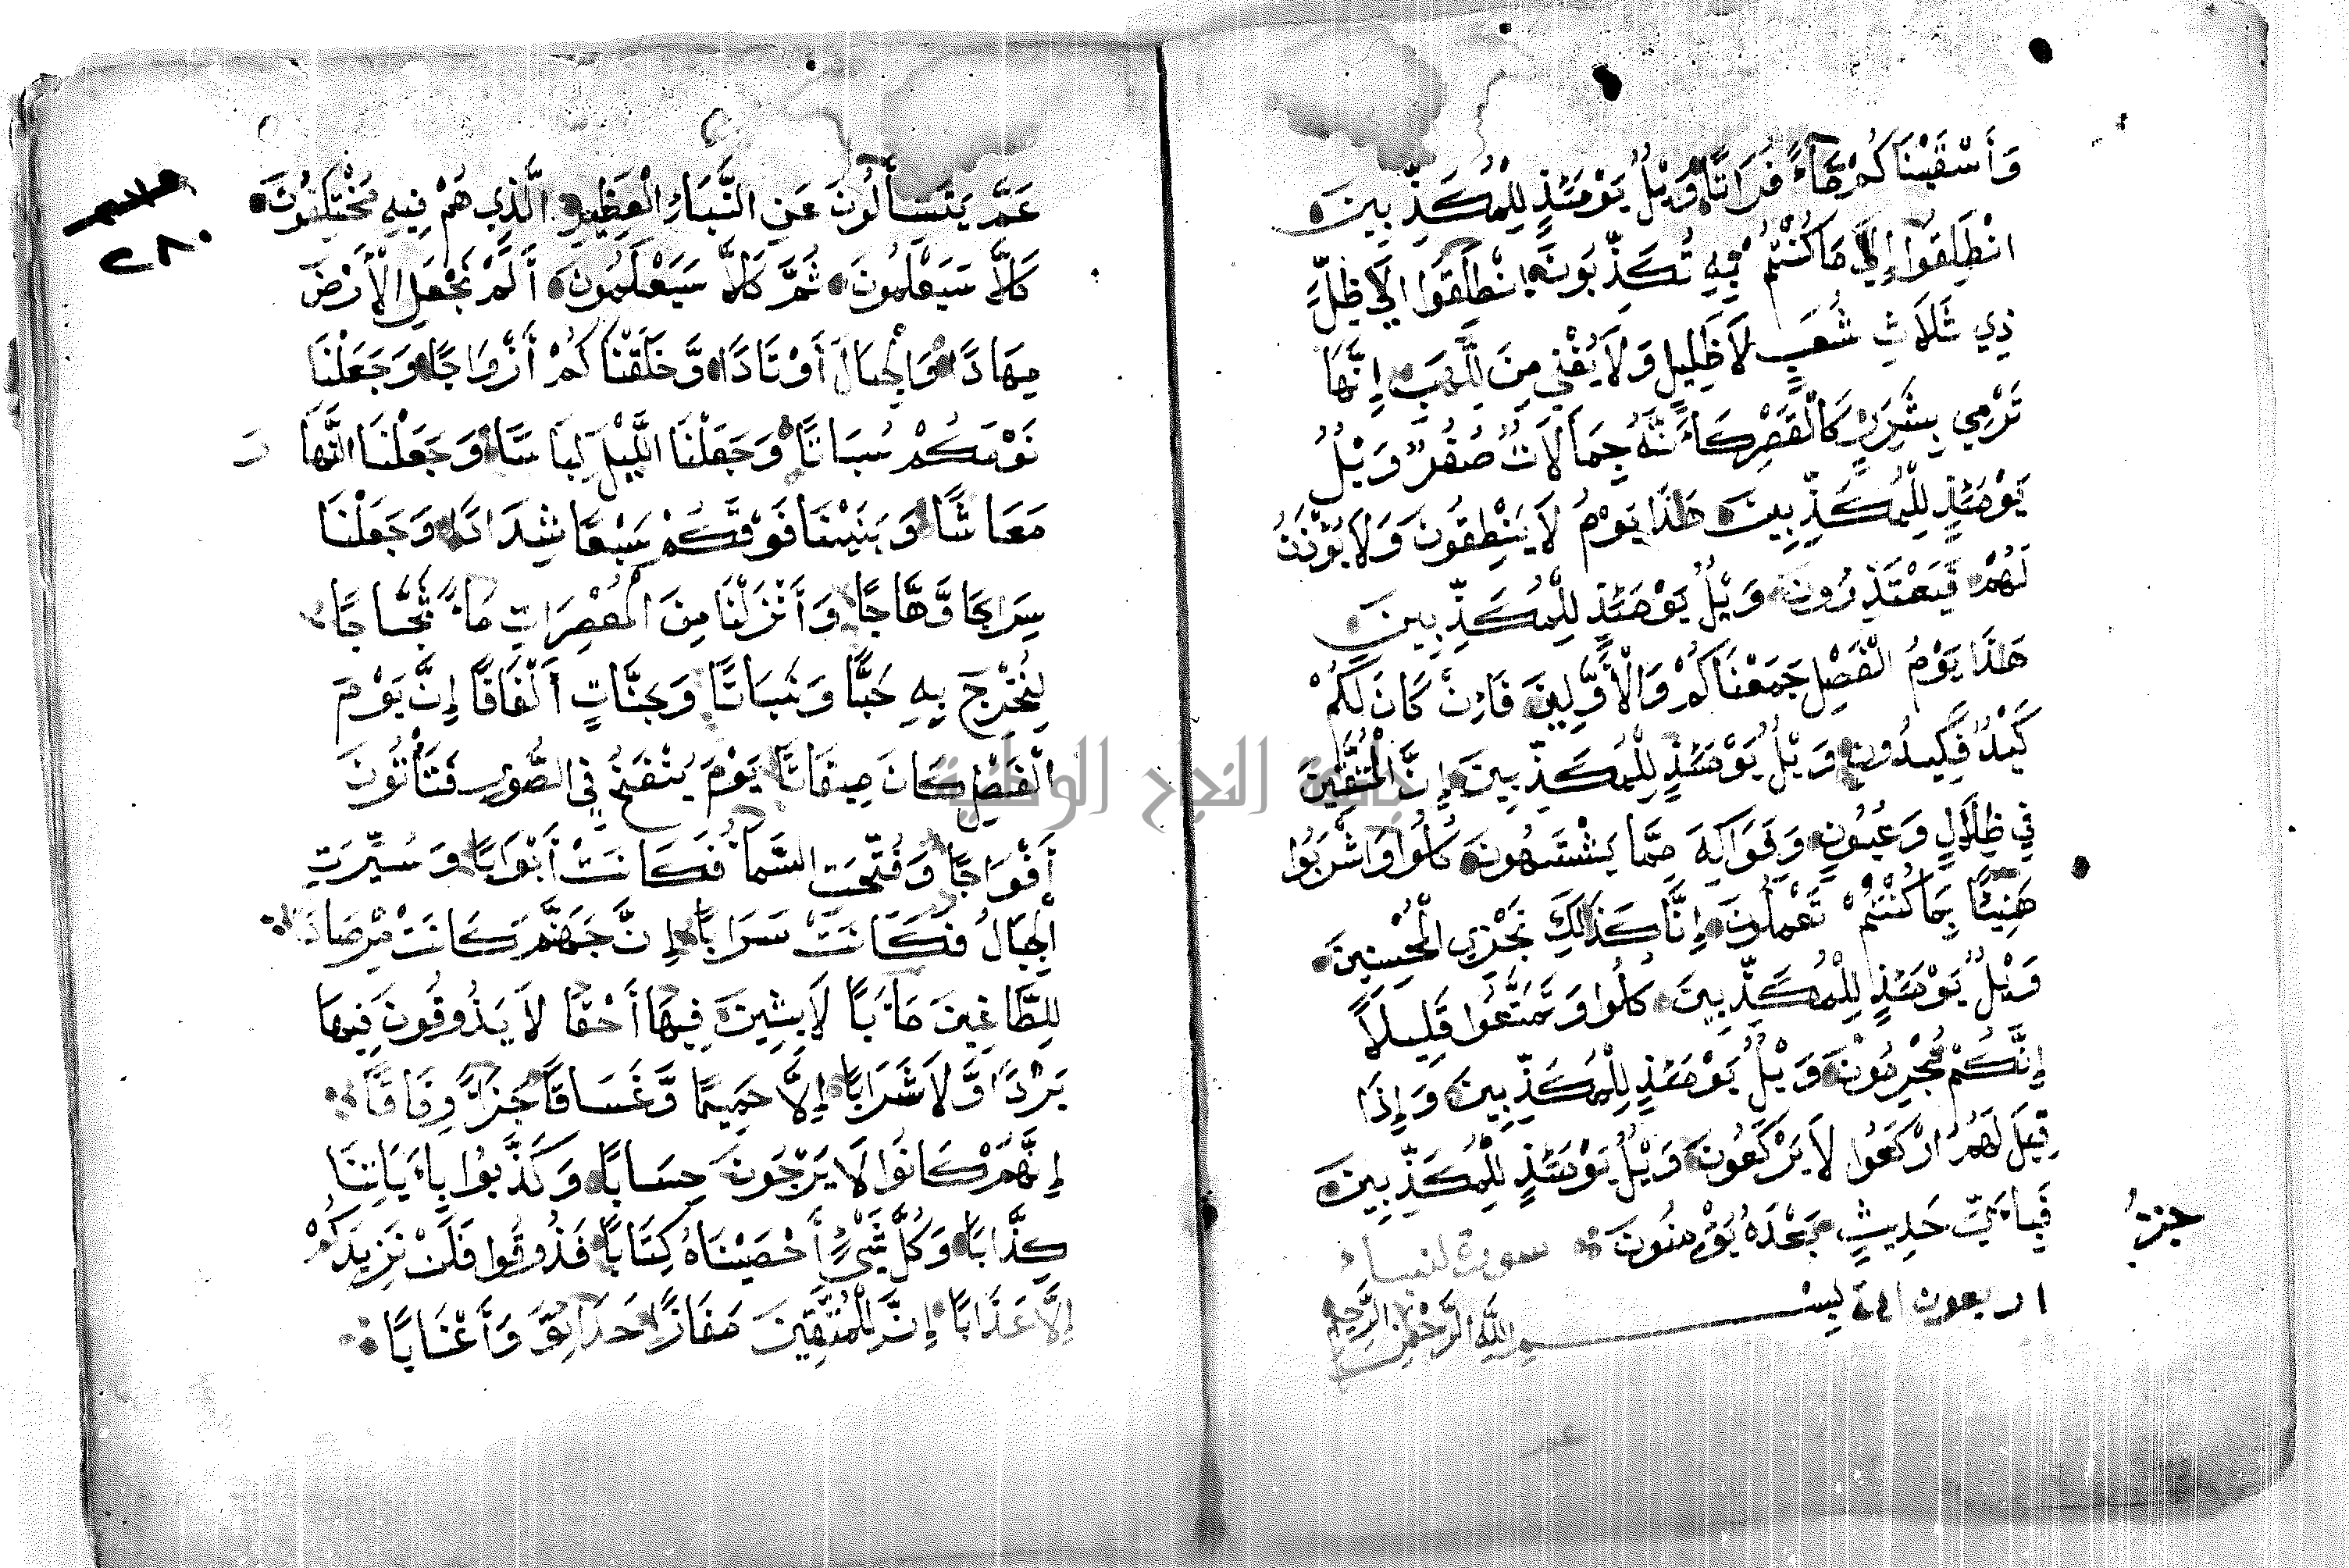 وَأَسْقَيْنَاكُمْ مَّاءً فُرَاتًا وَيْلٌ يَوْمَئِذٍ لِلْمُكَذِّبِينَ
انْطَلِقُوا إِلَى مَا كُنْتُمْ بِهِ تُكَذِّبُونَ انْطَلِقُوا إِلَى ظِلٍّ
ذِي ثَلَاثِ شُعَبٍ لَا ظَلِيلٍ وَلَا يُغْنِي مِنَ اللَّهَبِ إِنَّهَا
تَرْمِي بِشَرَرٍ كَالْقَصْرِ كَأَنَّهُ جِمَالَاتٌ صُفْرٌ وَيْلٌ
يَوْمَئِذٍ لِلْمُكَذِّبِينَ هَٰذَا يَوْمُ لَا يَنْطِقُونَ وَلَا يُؤْذَنُ
لَهُمْ فَيَعْتَذِرُونَ وَيْلٌ يَوْمَئِذٍ لِلْمُكَذِّبِينَ
هَٰذَا يَوْمُ الْفَصْلِ جَمَعْنَاكُمْ وَالْأَوَّلِينَ فَإِنْ كَانَ لَكُمْ
كَيْدٌ فَكِيدُونِ وَيْلٌ يَوْمَئِذٍ لِلْمُكَذِّبِينَ إِنَّ الْمُتَّقِينَ
فِي ظِلَالٍ وَعُيُونٍ وَفَوَاكِهَ مِمَّا يَشْتَهُونَ كُلُوا وَاشْرَبُوا
هَنِيئًا بِمَا كُنْتُمْ تَعْمَلُونَ إِنَّا كَذَٰلِكَ نَجْزِي الْمُحْسِنِينَ
وَيْلٌ يَوْمَئِذٍ لِلْمُكَذِّبِينَ كُلُوا وَتَمَتَّعُوا قَلِيلًا
إِنَّكُمْ مُجْرِمُونَ وَيْلٌ يَوْمَئِذٍ لِلْمُكَذِّبِينَ وَإِذَا
قِيلَ لَهُمُ ارْكَعُوا لَا يَرْكَعُونَ وَيْلٌ يَوْمَئِذٍ لِلْمُكَذِّبِينَ
فَبِأَيِّ حَدِيثٍ بَعْدَهُ يُؤْمِنُونَ سورة لنبساء
اربعون اية بِسْمِ اللَّهِ الرَّحْمَٰنِ الرَّحِيمِ
جزءُ
عَمَّ يَتَسَاءَلُونَ عَنِ النَّبَإِ الْعَظِيمِ الَّذِي هُمْ فِيهِ مُخْتَلِفُونَ
كَلَّا سَيَعْلَمُونَ ثُمَّ كَلَّا سَيَعْلَمُونَ أَلَمْ نَجْعَلِ الْأَرْضَ
مِهَادًا وَّالْجِبَالَ أَوْتَادًا وَّخَلَقْنَاكُمْ أَزْوَاجًا وَّجَعَلْنَا
نَوْمَكُمْ سُبَاتًا وَّجَعَلْنَا اللَّيْلَ لِبَاسًا وَّجَعَلْنَا النَّهَا رَ
مَعَاشًا وَّبَنَيْنَا فَوْقَكُمْ سَبْعًا شِدَادًا وَّجَعَلْنَا
سِرَاجًا وَّهَّاجًا وَّأَنْزَلْنَا مِنَ الْمُعْصِرَاتِ مَاءً ثَجَّاجًا
لِنُخْرِجَ بِهِ حَبًّا وَّنَبَاتًا وَّجَنَّاتٍ أَلْفَافًا إِنَّ يَوْمَ
الْفَصْلِ كَانَ مِيقَاتًا يَوْمَ يُنْفَخُ فِي الصُّورِ فَتَأْتُونَ
أَفْوَاجًا وَّفُتِّحَتِ السَّمَاءُ فَكَانَتْ أَبْوَابًا وَّسُيِّرَتِ
الْجِبَالُ فَكَانَتْ سَرَابًا إِنَّ جَهَنَّمَ كَانَتْ مِرْصَادًا
لِلطَّاغِينَ مَآبًا لَابِثِينَ فِيهَا أَحْقَا لَا يَذُوقُونَ فِيهَا
بَرْدًا وَّلَا شَرَابًا إِلَّا حَمِيمًا وَّغَسَّاقًا جَزَاءً وِفَاقًا
إِنَّهُمْ كَانُوا لَا يَرْجُونَ حِسَابًا وَّكَذَّبُوا بِآيَاتِنَا
كِذَّابًا وَكُلَّ شَيْءٍ أَحْصَيْنَاهُ كِتَابًا فَذُوقُوا فَلَنْ نَزِيدَكُمْ
إِلَّا عَذَابًا إِنَّ لِلْمُتَّقِينَ مَفَازًا حَدَائِقَ وَأَعْنَابًا
٢٨٠
جامعة النجاح الوطنية